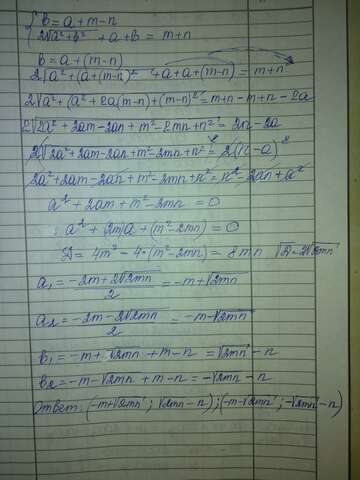 b = a + m - n
2√a² + b² + a + b = m + n
b = a + (m - n)
2√a² + (a + (m - n)² + a + a + (m - n) = m + n
2√a² + (a² + 2a(m - n) + (m - n)² = m + n - m + n - 2a
2√2a² + 2am - 2an + m² - 2mn + n² = 2n - 2a
2√2a² + 2am - 2an + m² - 2mn + n² ² = 2(n - a)²
2a² + 2am - 2an + m² - 2mn + n² = n² - 2an + a²
a² + 2am + m² - 2mn = 0
a² + (2m)a + (m² - 2mn) = 0
D = 4m² - 4·(m² - 2mn) = 8mn √D = 2√2mn
a₁ = (-2m + 2√2mn)/2 = -m + √2mn
a₂ = (-2m - 2√2mn)/2 = -m - √2mn
b₁ = -m + √2mn + m - n = √2mn - n
b₂ = -m - √2mn + m - n = -√2mn - n
Ответ: (-m + √2mn ; √2mn - n) ; (-m - √2mn ; -√2mn - n)